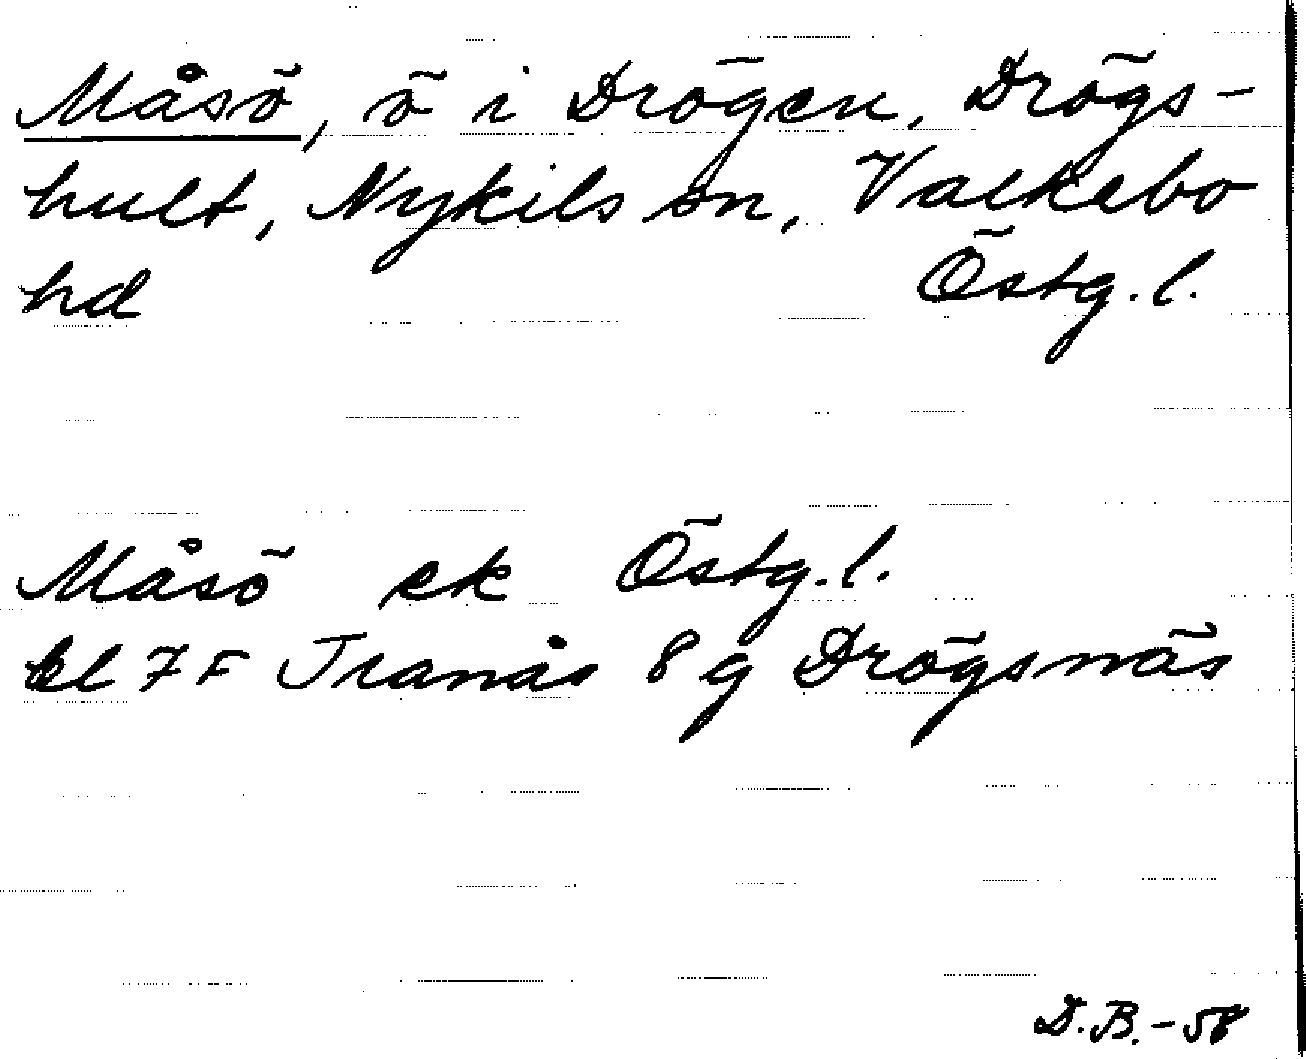 Måsö, ö i Drögen, Drögs-
hult, Nykils sn, Valkebo
hd Östg.l.
Måsö ek Östg.l.
bl 7F Tranås 8g Drögsnäs
D.B.-58